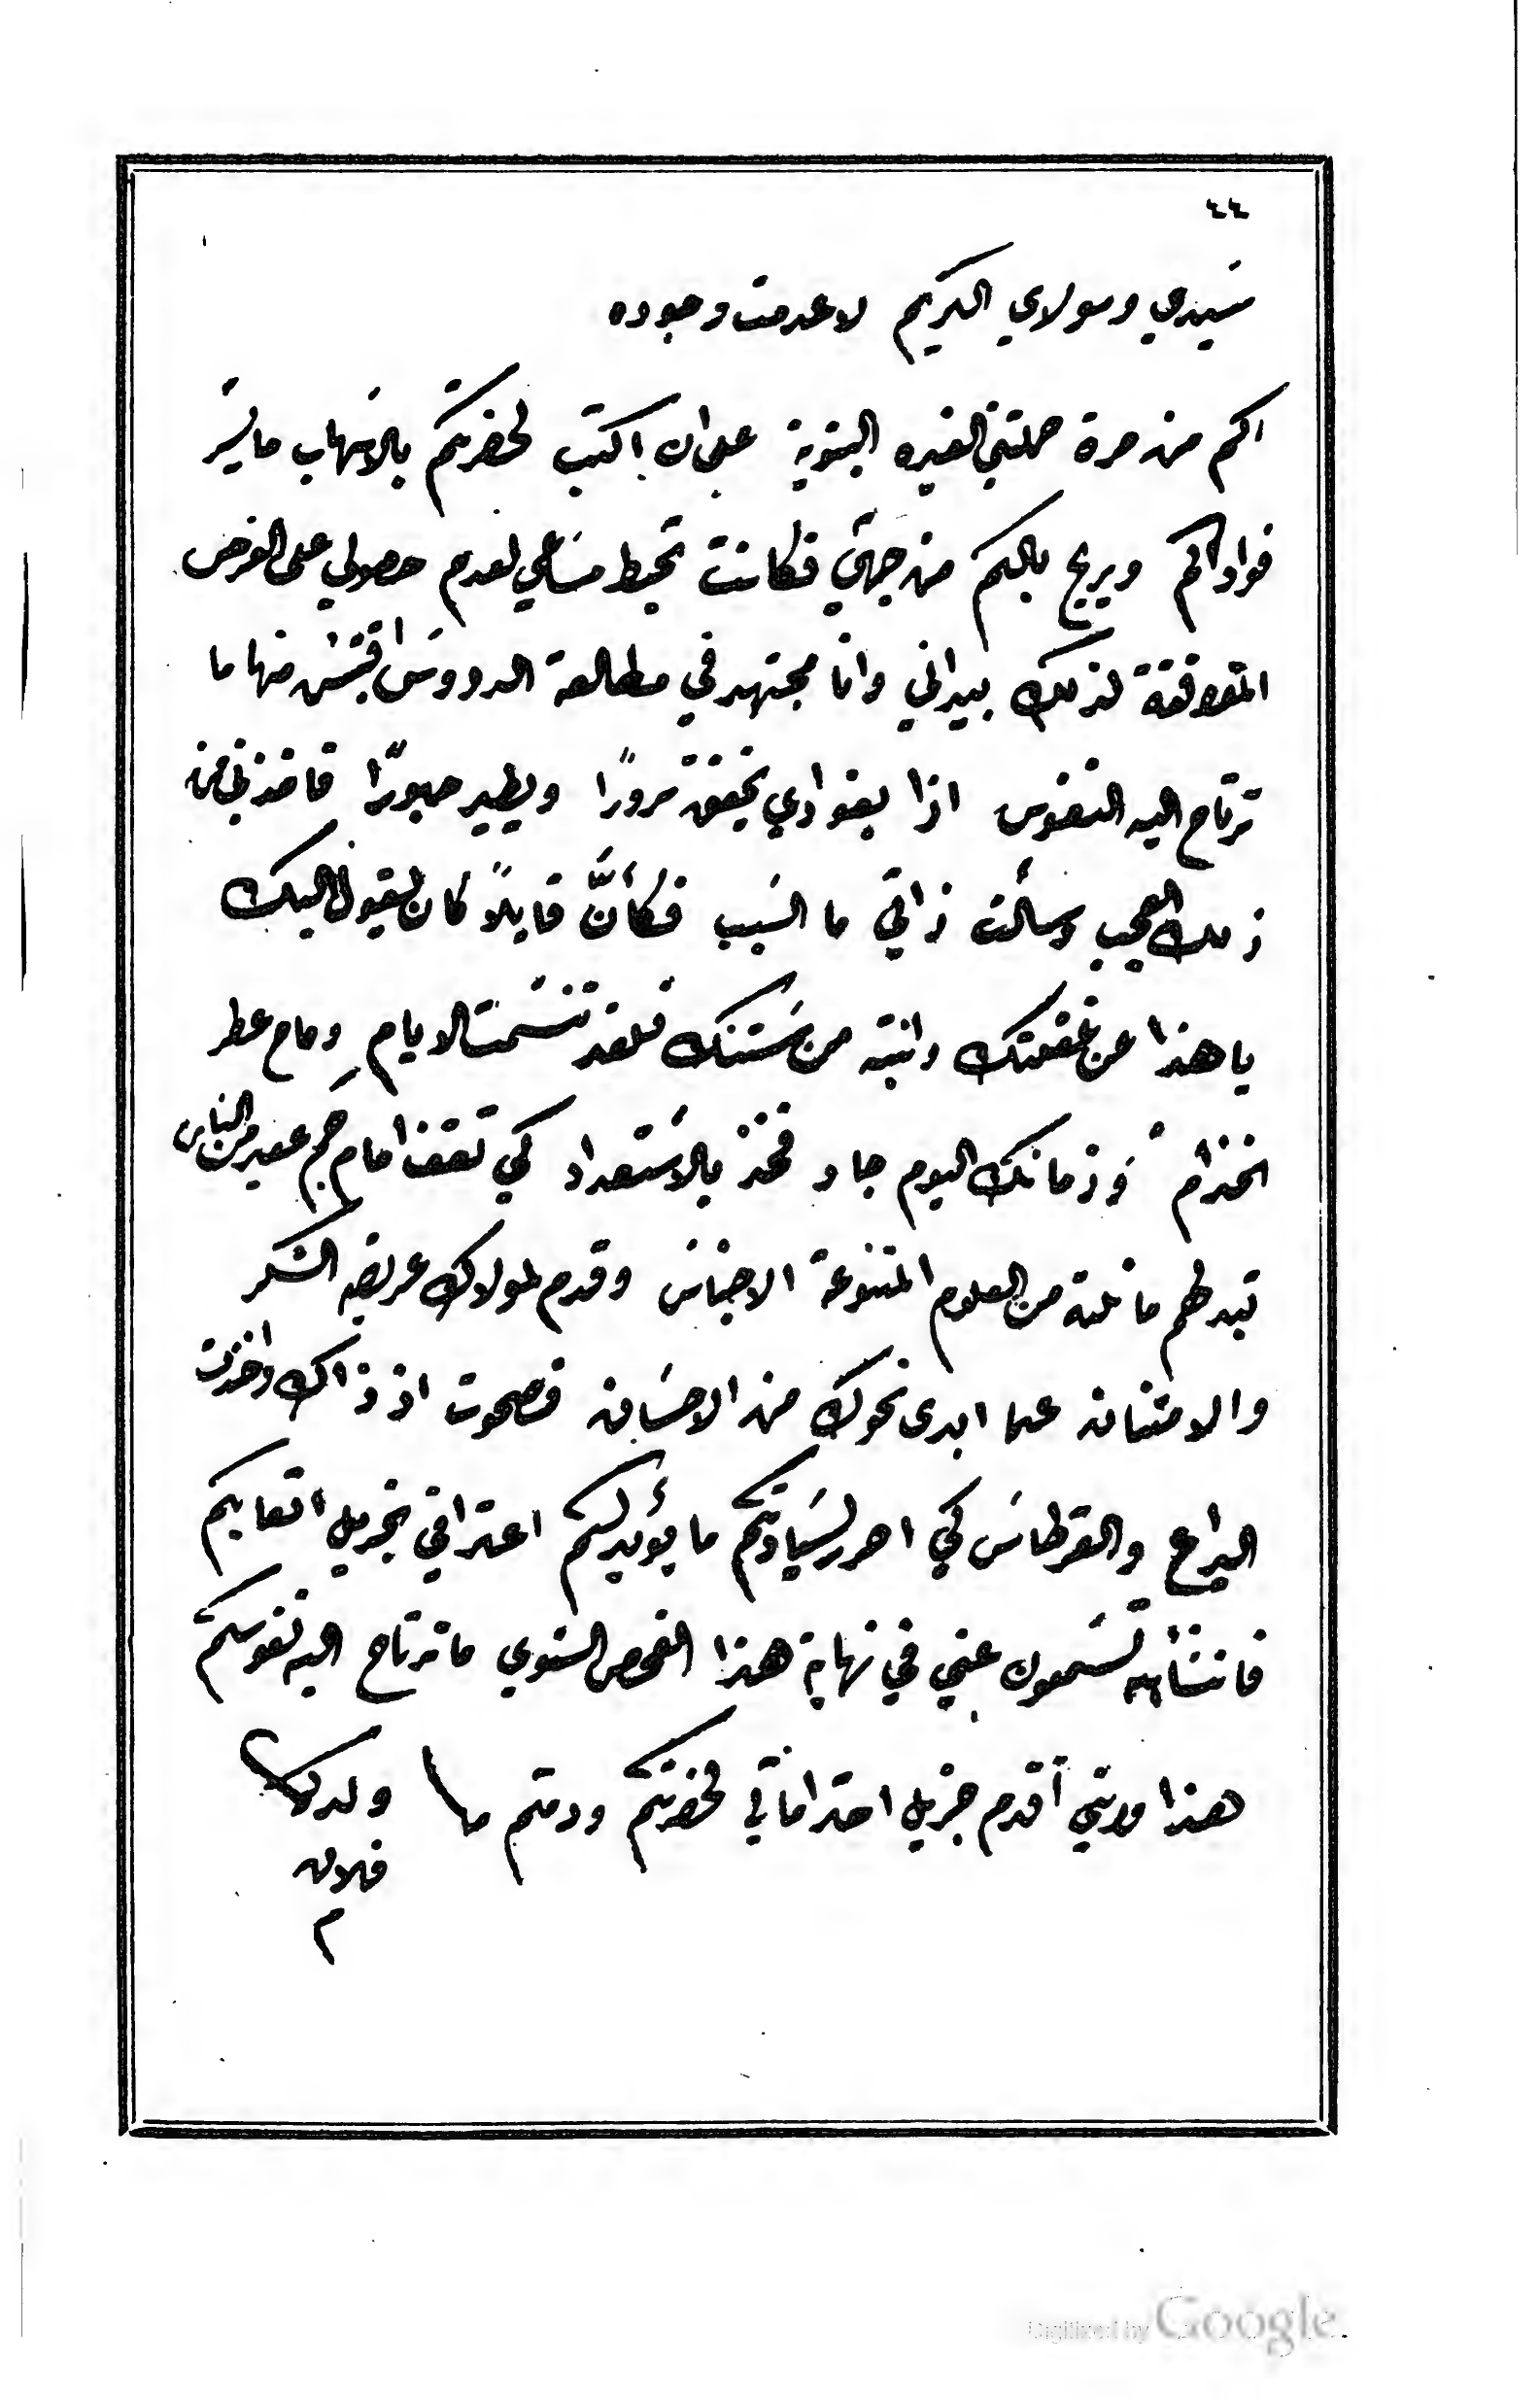 ٤٤
سيدي ومولاي الكريم لا عدمت وجوده
اكم من مرة حملتني الغيره البنوية على ان اكتب لحضرتكم بالاسهاب ما يسر
فوادكم ويريح بالكم من جهتي فكانت تحبط مساعي لعدم حصولي على الفرص
الموافقة لذلك بيد اني وانا مجتهد في مطالعة الدروس اقتبس منها ما
ترتاح اليه النفوس اذا بفوادي يخفق سرورًا ويطير حبورًا فاخذني من
ذلك العجب وسألت ذاتي ما السبب فكأنَّ قايلًا كان يقول اليك
يا هذا عن غفلتك وانتبه من سنتك فلقد تنسمت الايام وفاح عطر
الخزام وزمانك اليوم جاد فخذ بالاستعداد كي تقف امام جم غفير من الناس
تبد لهم ما نلته من العلوم المتنوعة الاجناس وقدم لمولاك عريضة الشكر
والامتنان عما ابدى نحوك من الاحسان فصحوت اذ ذاك واخذت
اليراع والقرطاس كي احرر لسيادتكم ما يؤيد لكم اعترافي بجزيل اتعابكم
فانشأالله تسمعون عني في نهاية هذا الفحص السنوي ما ترتاح اليه نفوسكم
هذا وانني أقدم جزيل احتراماتي لحضرتكم ودمتم ولدكم
فلان
م
Digitized by Google